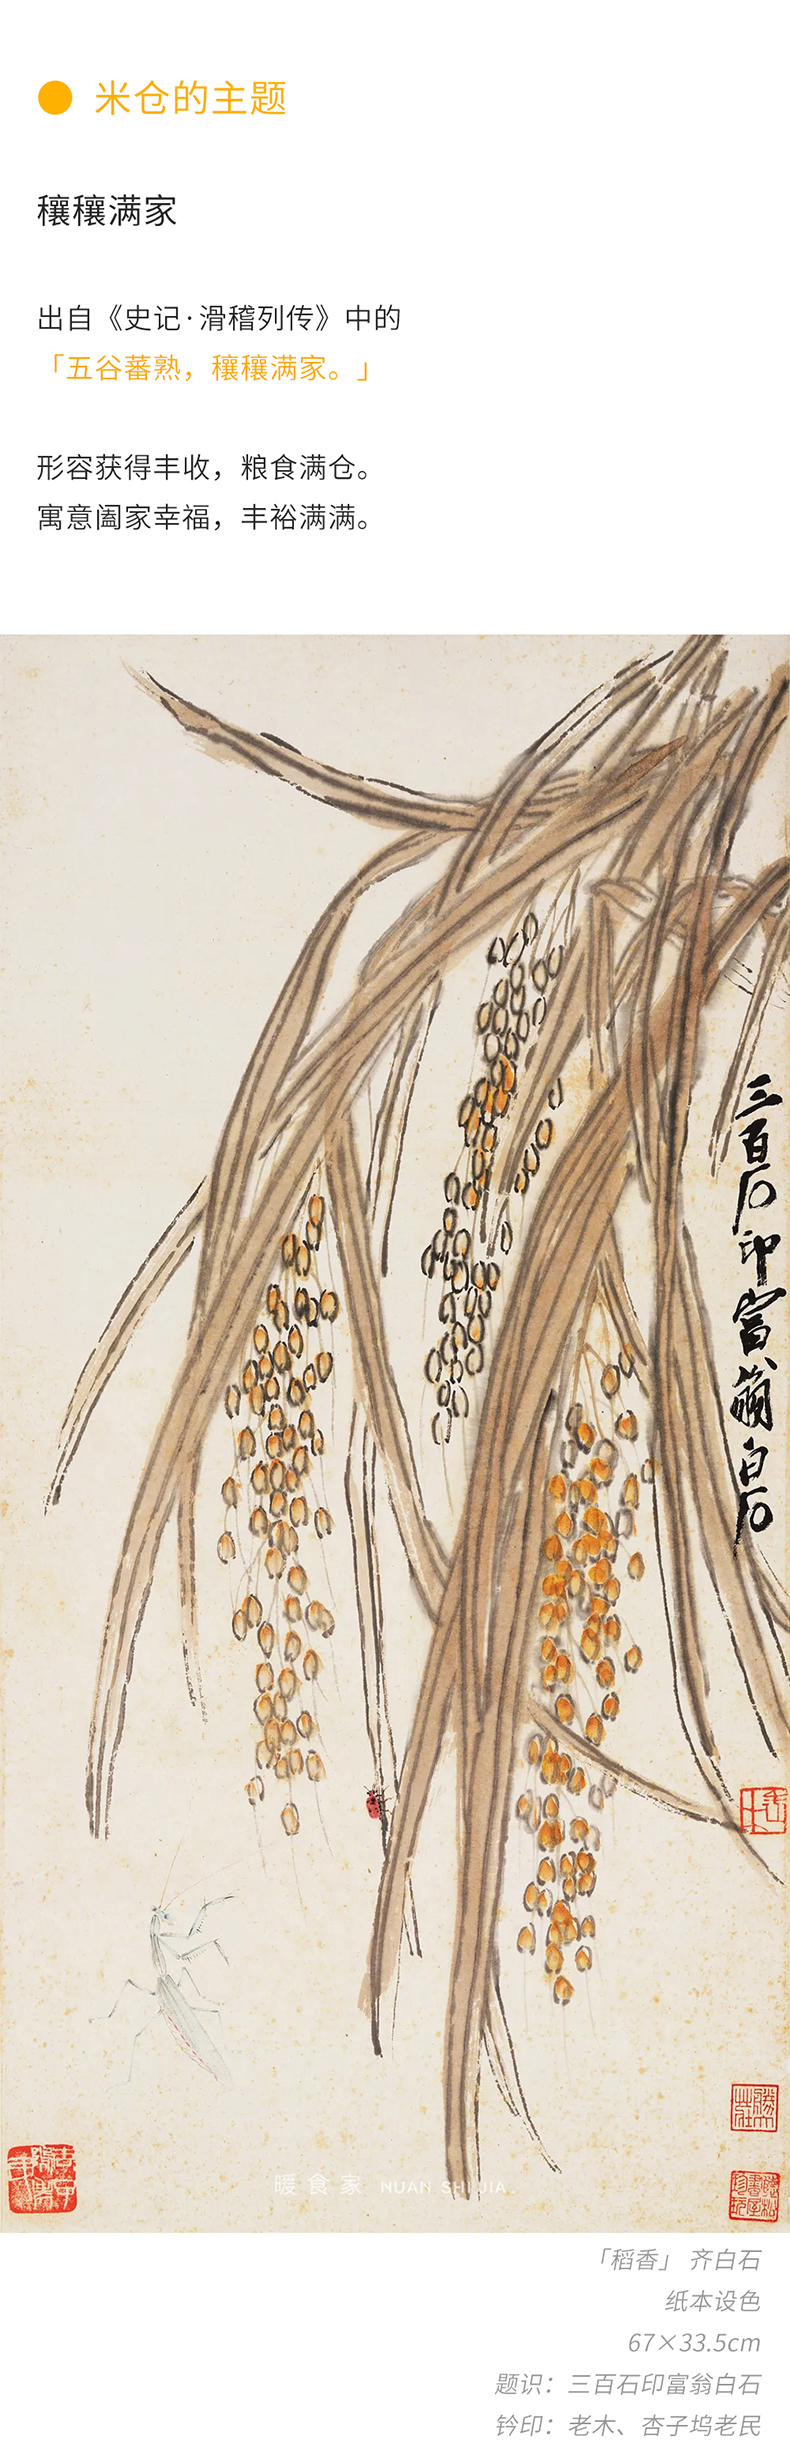 米仓的主题
穰穰满家
出自《史记·滑稽列传》中的
「五谷蕃熟，穰穰满家。」
形容获得丰收，粮食满仓。
寓意阖家幸福，丰裕满满。
三百石印富翁白石
暖食家 NUAN SHI JIA.
「稻香」 齐白石
纸本设色
67×33.5cm
题识：三百石印富翁白石
钤印：老木、杏子坞老民